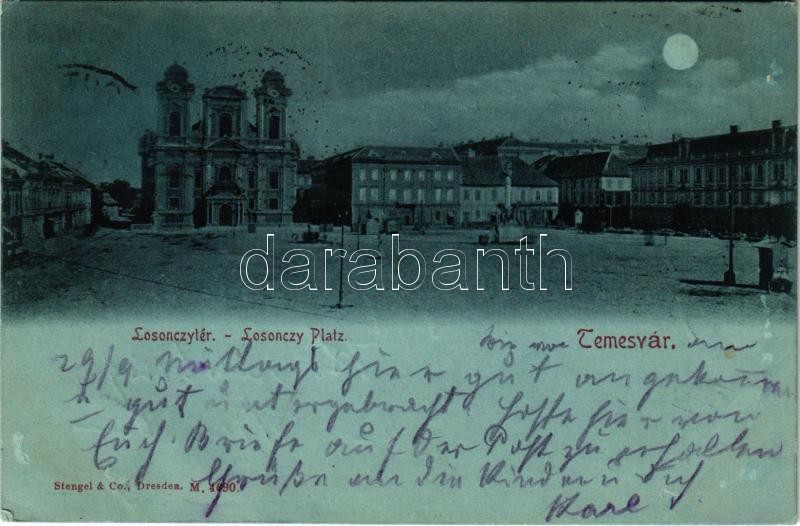 darabanth
Losonczytér. - Losonczy Platz.
Temesvár.
29/9 Mittags hier gut angekommen
gut untergebracht. Hoffe hier von
Euch Briefe auf der Post zu erhalten
Grüße an die Kinder u Dich
Karl
Stengel & Co., Dresden. M. 4690.